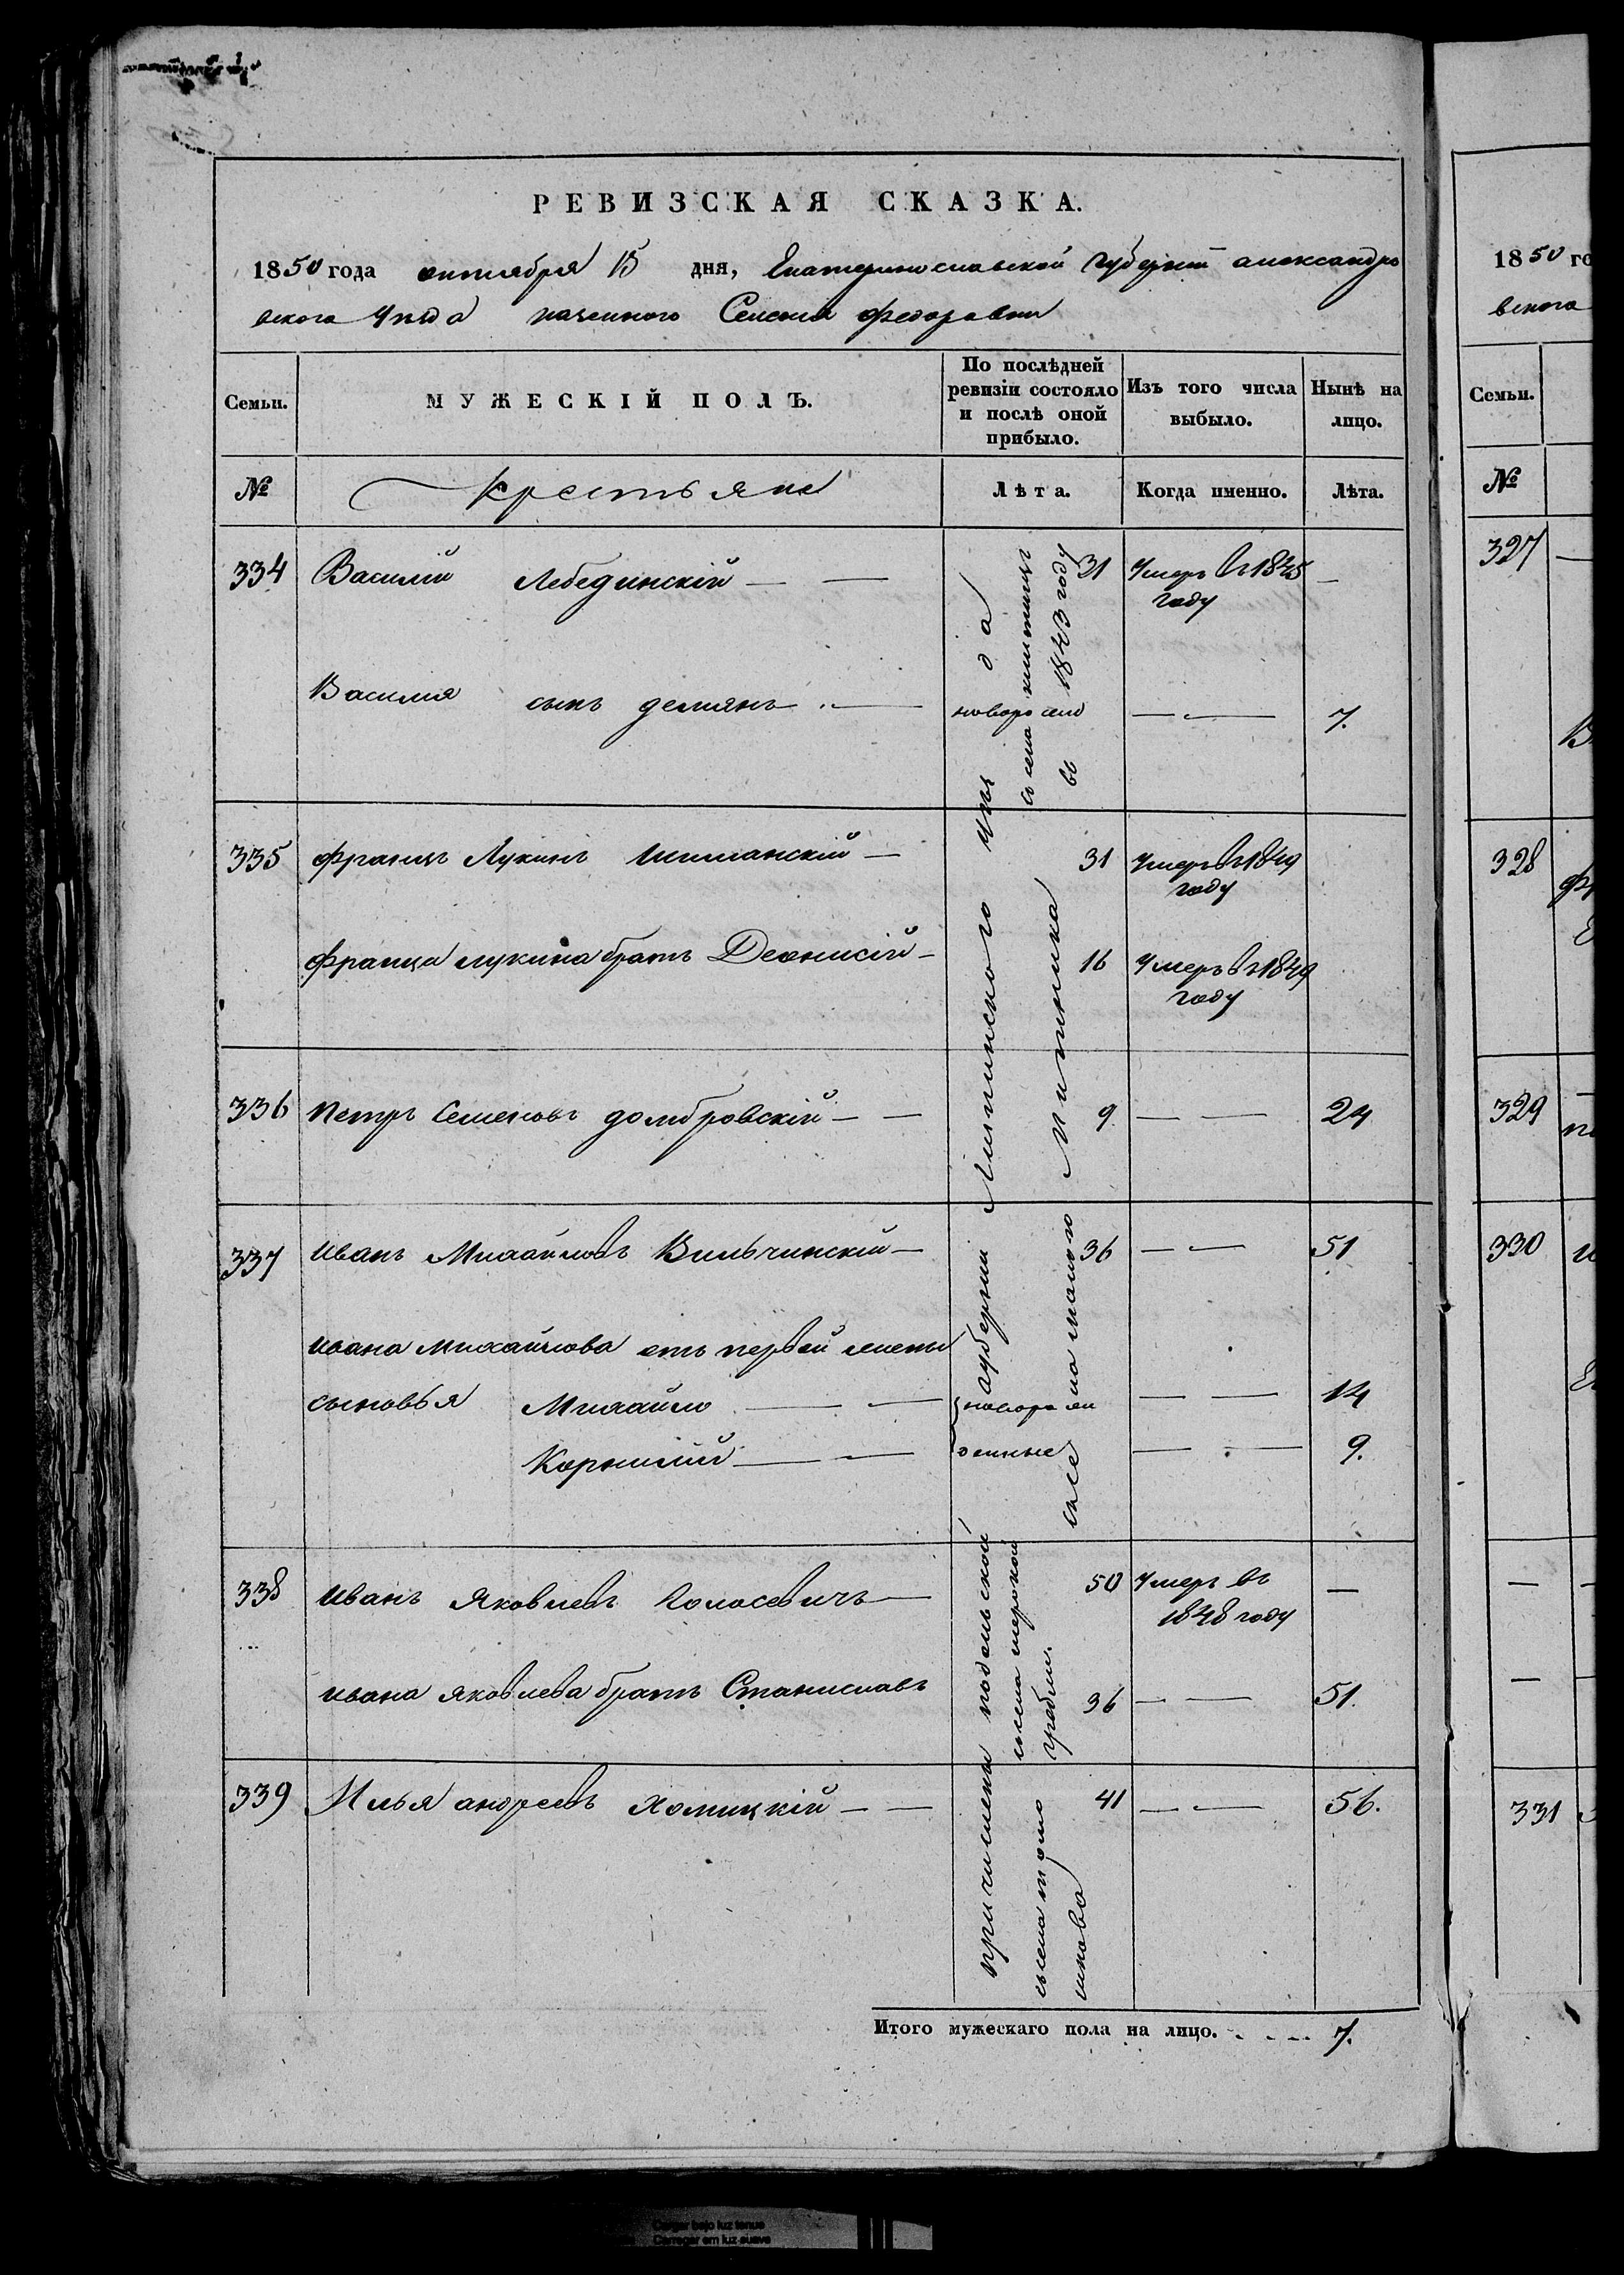 РЕВИЗСКАЯ СКАЗКА.
1850 года октября 15 дня, Екатеринославской губернии александро
вского уѣзда казенного Селения федоровки
Семьи. МУЖЕСКІЙ ПОЛЪ. По послѣдней ревизіи состояло и послѣ оной прибыло. Изъ того числа выбыло. Нынѣ на лицо.
№ Крестьяне Лѣта. Когда именно. Лѣта.
334 Василій Лебединскій — — 31 Умеръ въ 1845 —
году
Василия сынъ демянъ — новорожд — — 7.
335 францъ Лукинъ Шиманскій — 31 Умеръ въ 1849
году
франца лукина братъ Деонисій — 16 Умеръ въ 1849
году
336 Петръ Семеновъ домбровскій — — 9 — — 24
337 Иванъ Михайловъ Вильчинскій — 36 — — 51
Ивана Михайлова отъ первой жены
сыновья Михайло — — новорож — — 14
Корнилій — — денные — — 9.
338 Иванъ Яковлевъ Колосевичъ — 50 Умеръ въ —
1848 году
Ивана Яковлева братъ Станиславъ 36 — — 51.
339 Илья андреевъ Хомицкій — — 41 — — 56.
причислены подольской губерніи Литинского уѣзда
въ 1843 году
Итого мужескаго пола на лицо. 7.
1850 го
вского
Семьи.
№
327 —
328
329
330
331